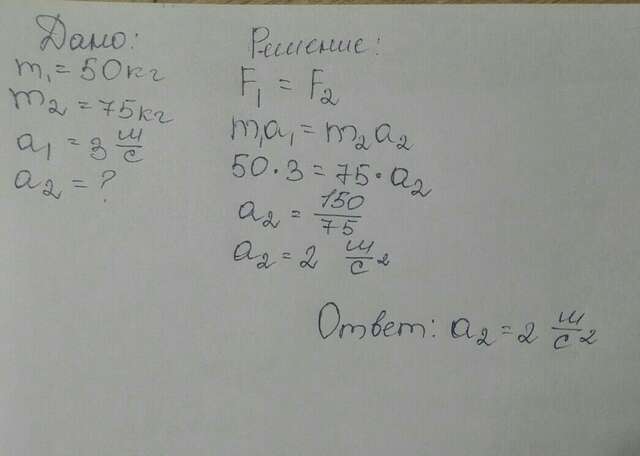 Дано:
m₁ = 50кг
m₂ = 75кг
a₁ = 3 м/с
a₂ = ?
Решение:
F₁ = F₂
m₁a₁ = m₂a₂
50 · 3 = 75 · a₂
a₂ = 150/75
a₂ = 2 м/с²
Ответ: a₂ = 2 м/с²